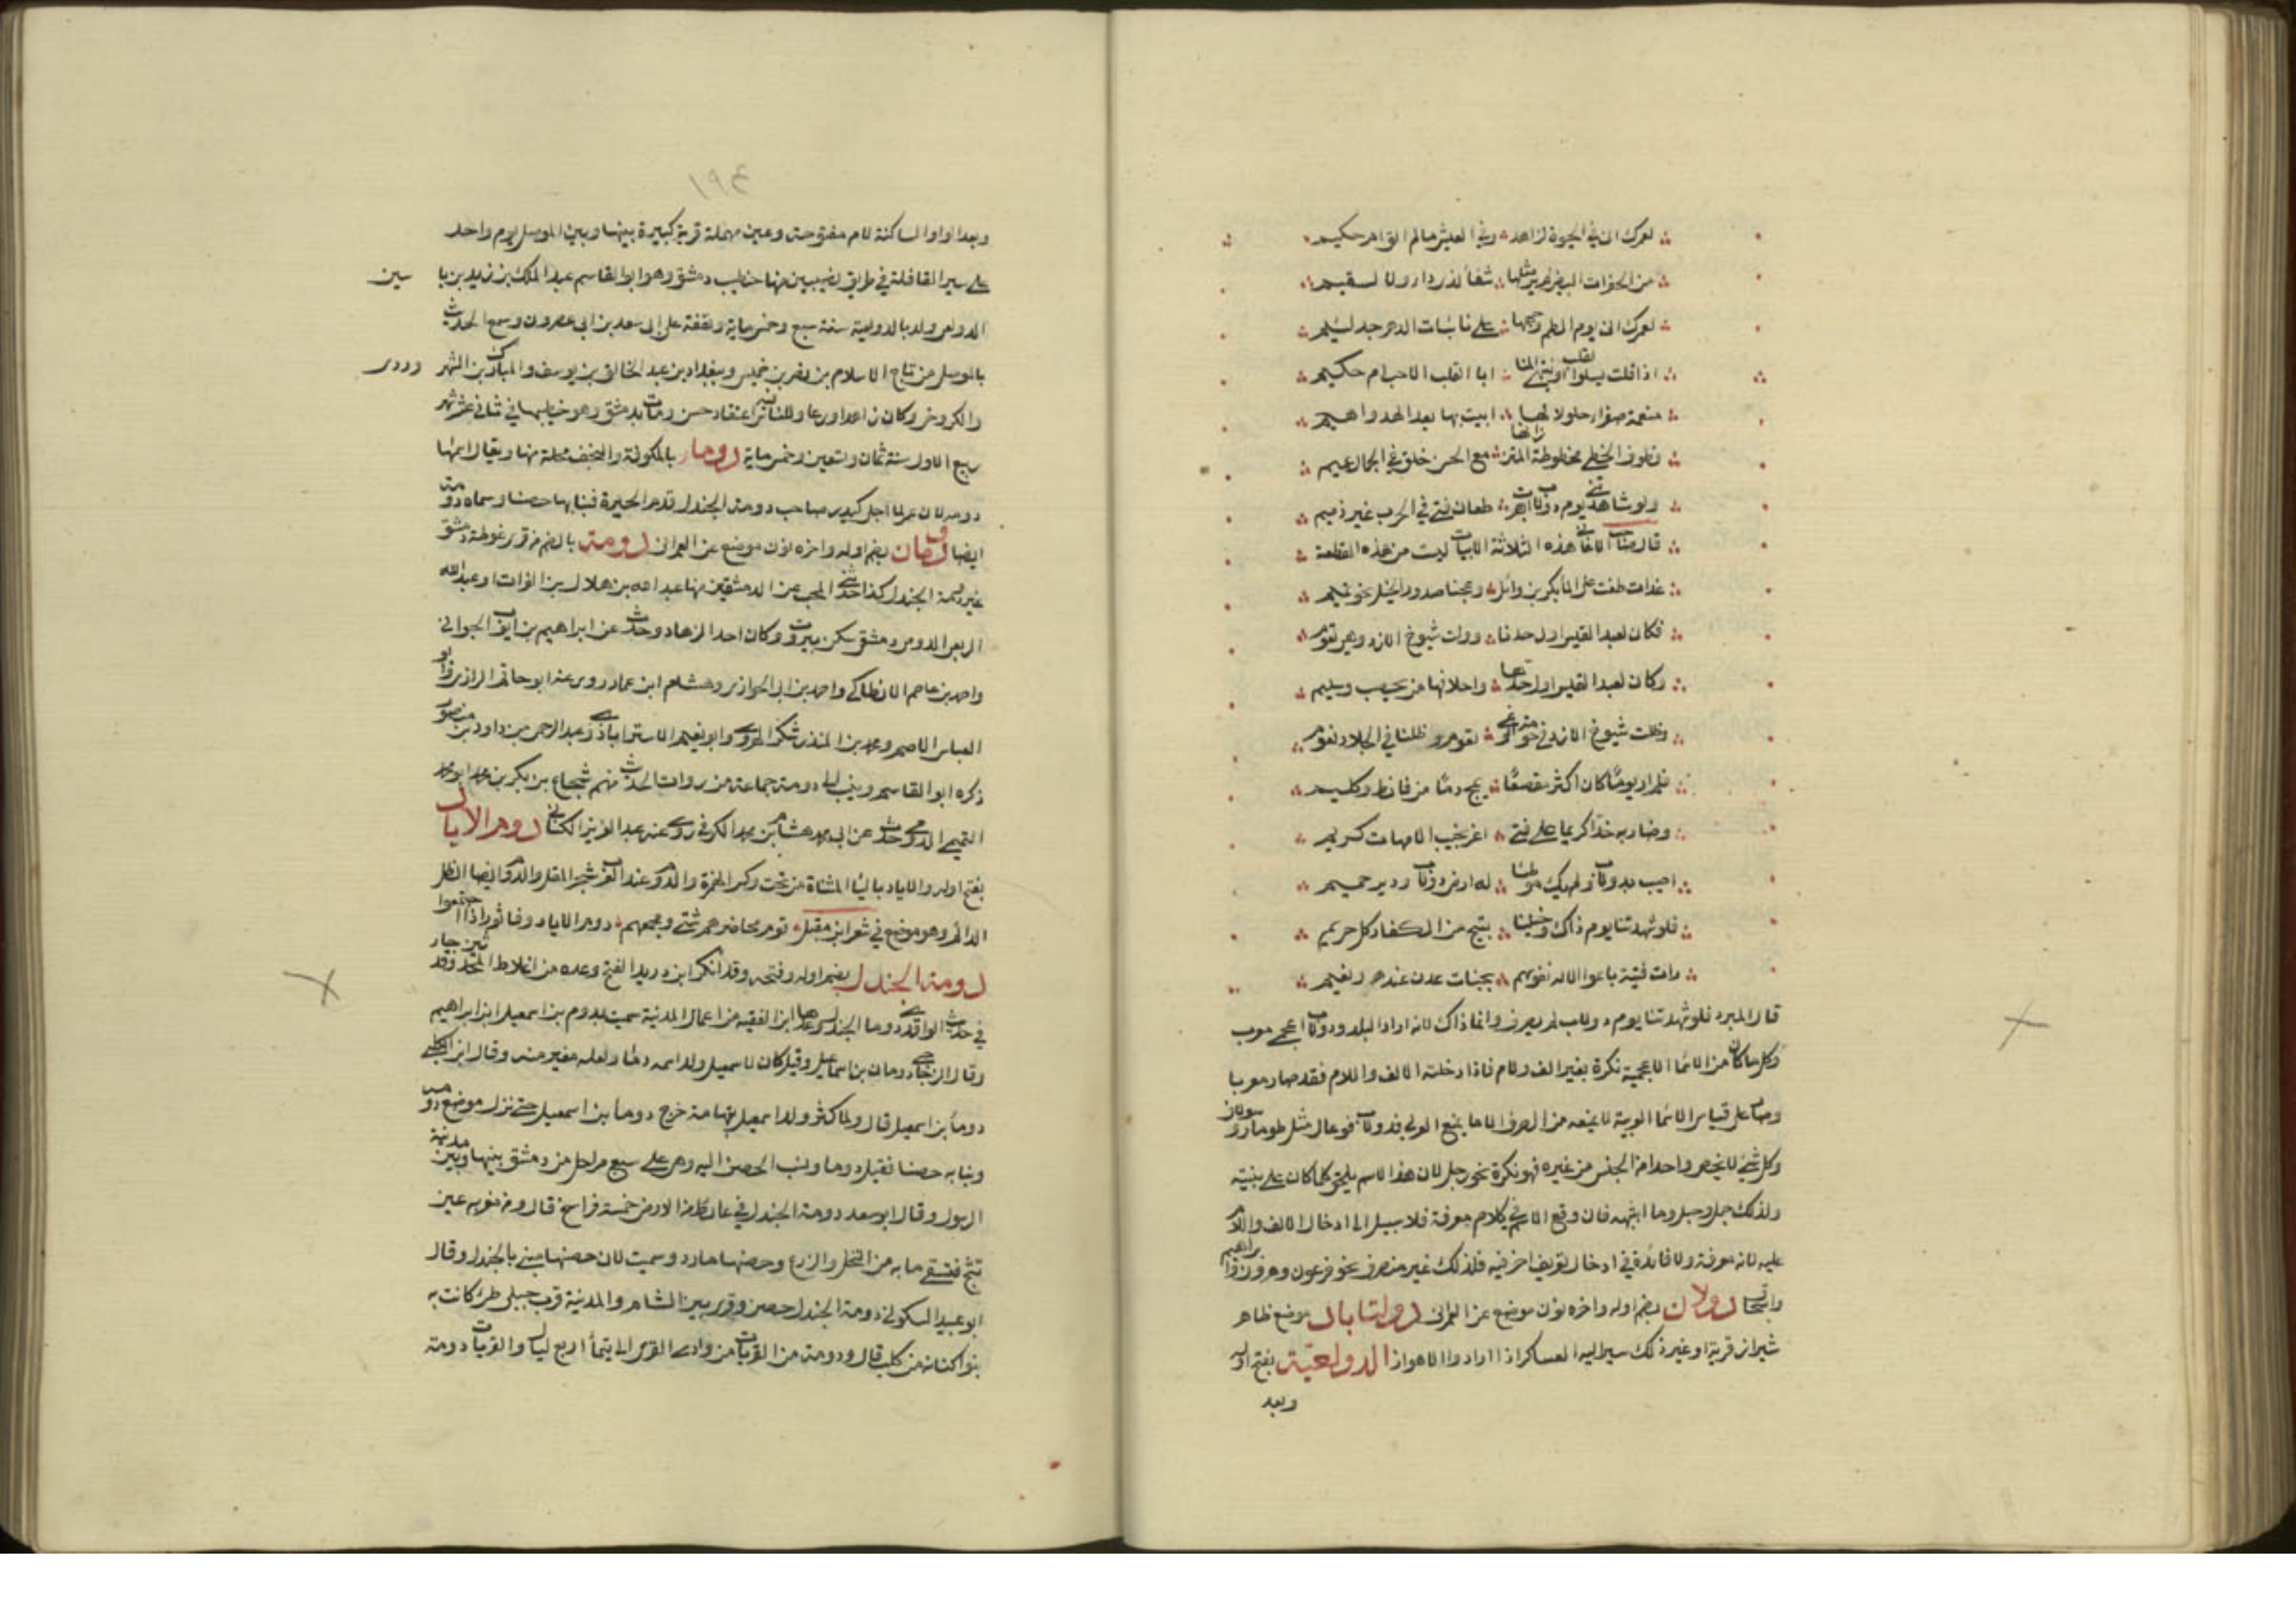 لعمرك انى في الحيوة لزاهد وفي العيش مالم الق ام حكيم
من الخفرات البيض لم ير مثلها شفاً لذى داء ولا لسقيم
لعمرك انى يوم الطم وجهها على نائبات الدهر جد لئيم
اذا قلت يسلوا القلب او ينتهى المنا ابا القلب الا حب ام حكيم
منعمة صفراء حلو دلالها ابيت بها بعد الهدو اهيم
قطوف الخطى مخطوطة المتن زانها مع الحسن خلق في الجمال عميم
ولو شاهدتني يوم دولاب ابصرت طعان فتى في الحرب غير ذميم
قال صاحب الاغاني هذه الثلاثة الابيات ليست من هذه القطعة
غداة طفت على الما بكر بن وائل وعجنا صدور الخيل نحو تميم
فكان لعبد القيس اول حدنا وولت شيوخ الازد وهى تعوم
وكان لعبد القيس اول حدها واحلافها من يحصب وسليم
وظلت شيوخ الازد في حومة الوغى تعوم وظلنا في الجلاد نعوم
فلم ار يوماً كان اكثر مقصعًا يمج دمًا من فائظ وكليم
وضاربة خدًا كريما على فتى اغر نجيب الامهات كريم
اصيب بدولاب ولم يك موطنا له ارض دولاب ودير حميم
فلو شهدتنا يوم ذاك وخيلنا تبيح من الكفار كل حريم
رات فتية باعوا الاله نفوسهم بجنات عدن عنده ونعيم
قال المبرد فلو شهدتنا يوم دولاب لم يصرف وانما ذاك لانه اراد البلد ودولاب اعجمى معرب
وكل ما كان من الاسما الاعجمية نكرة بغير الف ولام فاذا دخلته الالف واللام فقد صار معربا
وصار على قياس الاسما العربية لا يمنعه من الصرف الا ما يمنع العربى فدولاب فوعال مثل طومار وسولاف
وكل شئ لا يخص واحدا من الجنس من غيره فهو نكرة نحو رجل لان هذا الاسم يلحق كلما كان على بنيته
وكذلك جمل وجبل وما اشبهه فان وقع الاسم في كلام معرفة فلا سبيل الى ادخال الالف واللام
عليه لانه معرفة ولا فائدة في ادخال تعريف اخر فيه فلذلك غير منصرف نحو فرعون وهرون وابراهيم
واسحاق دولان بضم اوله واخره نون موضع عن العمرانى دولتاباد موضع ظاهر
شيراز قرية او غير ذلك سير اليه العساكر اذا ارادوا الاهواز الدولعية بفتح اوله
وبعد
١٩٤
وبعد الواو الساكنة لام مفتوحة وعين مهملة قرية كبيرة بينها وبين الموصل يوم واحد
على سير القافلة في طريق نصيبين منها خطيب دمشق وهو ابوالقاسم عبد الملك بن زيد بن يا سين
الدولعى ولد بالدولعية سنة سبع وخمسماية وتفقه على ابى سعد بن ابى عصرون وسمع الحديث
بالموصل من تاج الاسلام بن نصر بن خميس وببغداد من عبد الخالق بن يوسف والمبارك بن الشهر زورى
والكروخى وكان زاهدا ورعا وللناس فيه اعتقاد حسن ومات بدمشق وهو خطيبها في ثانى عشر شهر
ربيع الاول سنة ثمان وتسعين وخمسماية دوما بالكوفة والنجف محلة منها ويقال اسمها
دومة لان عمر لما اجلى اكيدر صاحب دومة الجندل قدم الحيرة فبنا بها حصنا وسماه دومة
ايضا دومان بضم اوله واخره نون موضع عن العمرانى دومة بالضم من قرى غوطة دمشق
غير دومة الجندل كذا حدثني المحب عن الدمشقيين منها عبد الله بن هلال بن الفرات ابو عبد الله
الربعى الدومى دمشقى سكن بيروت وكان احد الزهاد وحدث عن ابراهيم بن ايوب الحورانى
واحمد بن عاصم الانطاكى واحمد بن ابى الحوارى وهشام ابن عمار روى عنه ابو حاتم الرازى وابو
العباس الاصم ومحمد بن المنذر شكر الهروى وابو نعيم الاستراباذى وعبد الرحمن بن داود بن منصور
ذكره ابو القاسم وينسب الى دومة جماعة من رواة الحديث منهم شجاع بن بكر بن محمد ابو محمد
التميمى الدومى حدث عن ابى محمد هشام بن محمد الكوفى روى عنه عبد العزيز الكنانى دوم الاياد
بفتح اوله والاياد بالياء المثناة من تحت وكسر الهمزة والدوم عند العرب شجر المقل والدوم ايضا الظل
الدائم وهو موضع في شعر ابن مقبل قوم محاضرهم شتى ومجمعهم دوم الاياد وفاثور اذا اجتمعوا
دومة الجندل بضم اوله وفتحه وقد انكر ابن دريد الفتح وعده من اغلاط المحدثين وقد جاء
في حديث الواقدى دوما الجندل وعدها ابن الفقيه من اعمال المدينة سميت بدوم بن اسمعيل ابن ابراهيم
وقال الزجاجى دومان بن اسماعيل وقيل كان لاسمعيل ولد اسمه دما ولعله مغير منه وقال ابن الكلبى
دوماً بن اسمعيل قال ولما كثر ولد اسمعيل بتهامة خرج دوماً بن اسمعيل حتى نزل موضع دومة
وبنا به حصنا فقيل دوما ونسب الحصن اليه وهى على سبع مراحل من دمشق بينها وبين مدينة
الرسول وقال ابو سعد دومة الجندل في غائط من الارض خمسة فراسخ قال ومن مغربه عين
تثج فتسقى ما به من النخل والزرع وحصنها مارد وسميت لان حصنها مبنى بالجندل وقال
ابو عبيد السكونى دومة الجندل حصن وقرى بين الشام والمدينة قرب جبلى طى كانت به
بنو كنانة من كلب قال ودومة من القريات من وادى القرى الى تيمأ اربع ليال والقريات دومة